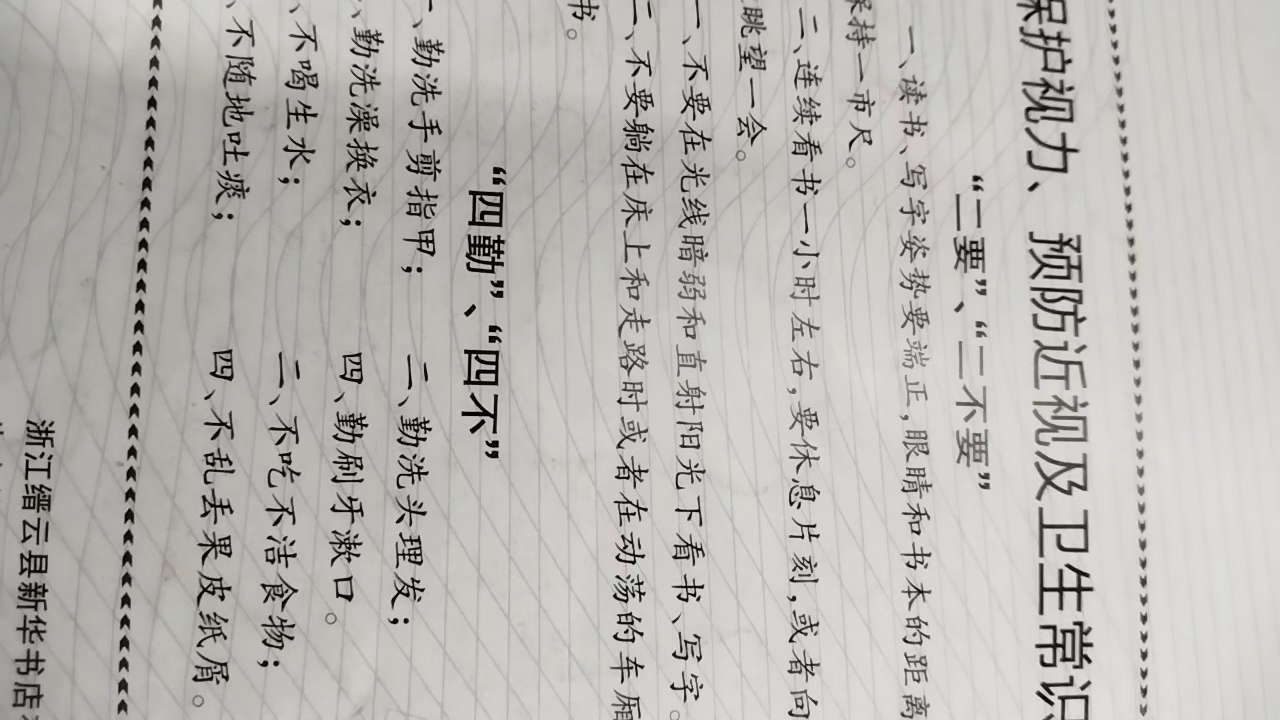 保护视力、预防近视及卫生常识
“二要”、“二不要”
一、读书、写字姿势要端正,眼睛和书本的距离
保持一市尺。
二、连续看书一小时左右,要休息片刻,或者向
眺望一会。
一、不要在光线暗弱和直射阳光下看书、写字。
二、不要躺在床上和走路时或者在动荡的车厢
书。
“四勤”、“四不”
一、勤洗手剪指甲; 二、勤洗头理发;
、勤洗澡换衣; 四、勤刷牙漱口。
、不喝生水; 二、不吃不洁食物;
、不随地吐痰; 四、不乱丢果皮纸屑。
浙江缙云县新华书店